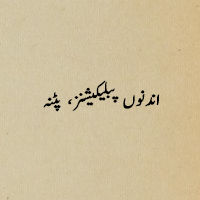 اندنوں پبلیکیشنز، پٹنہ